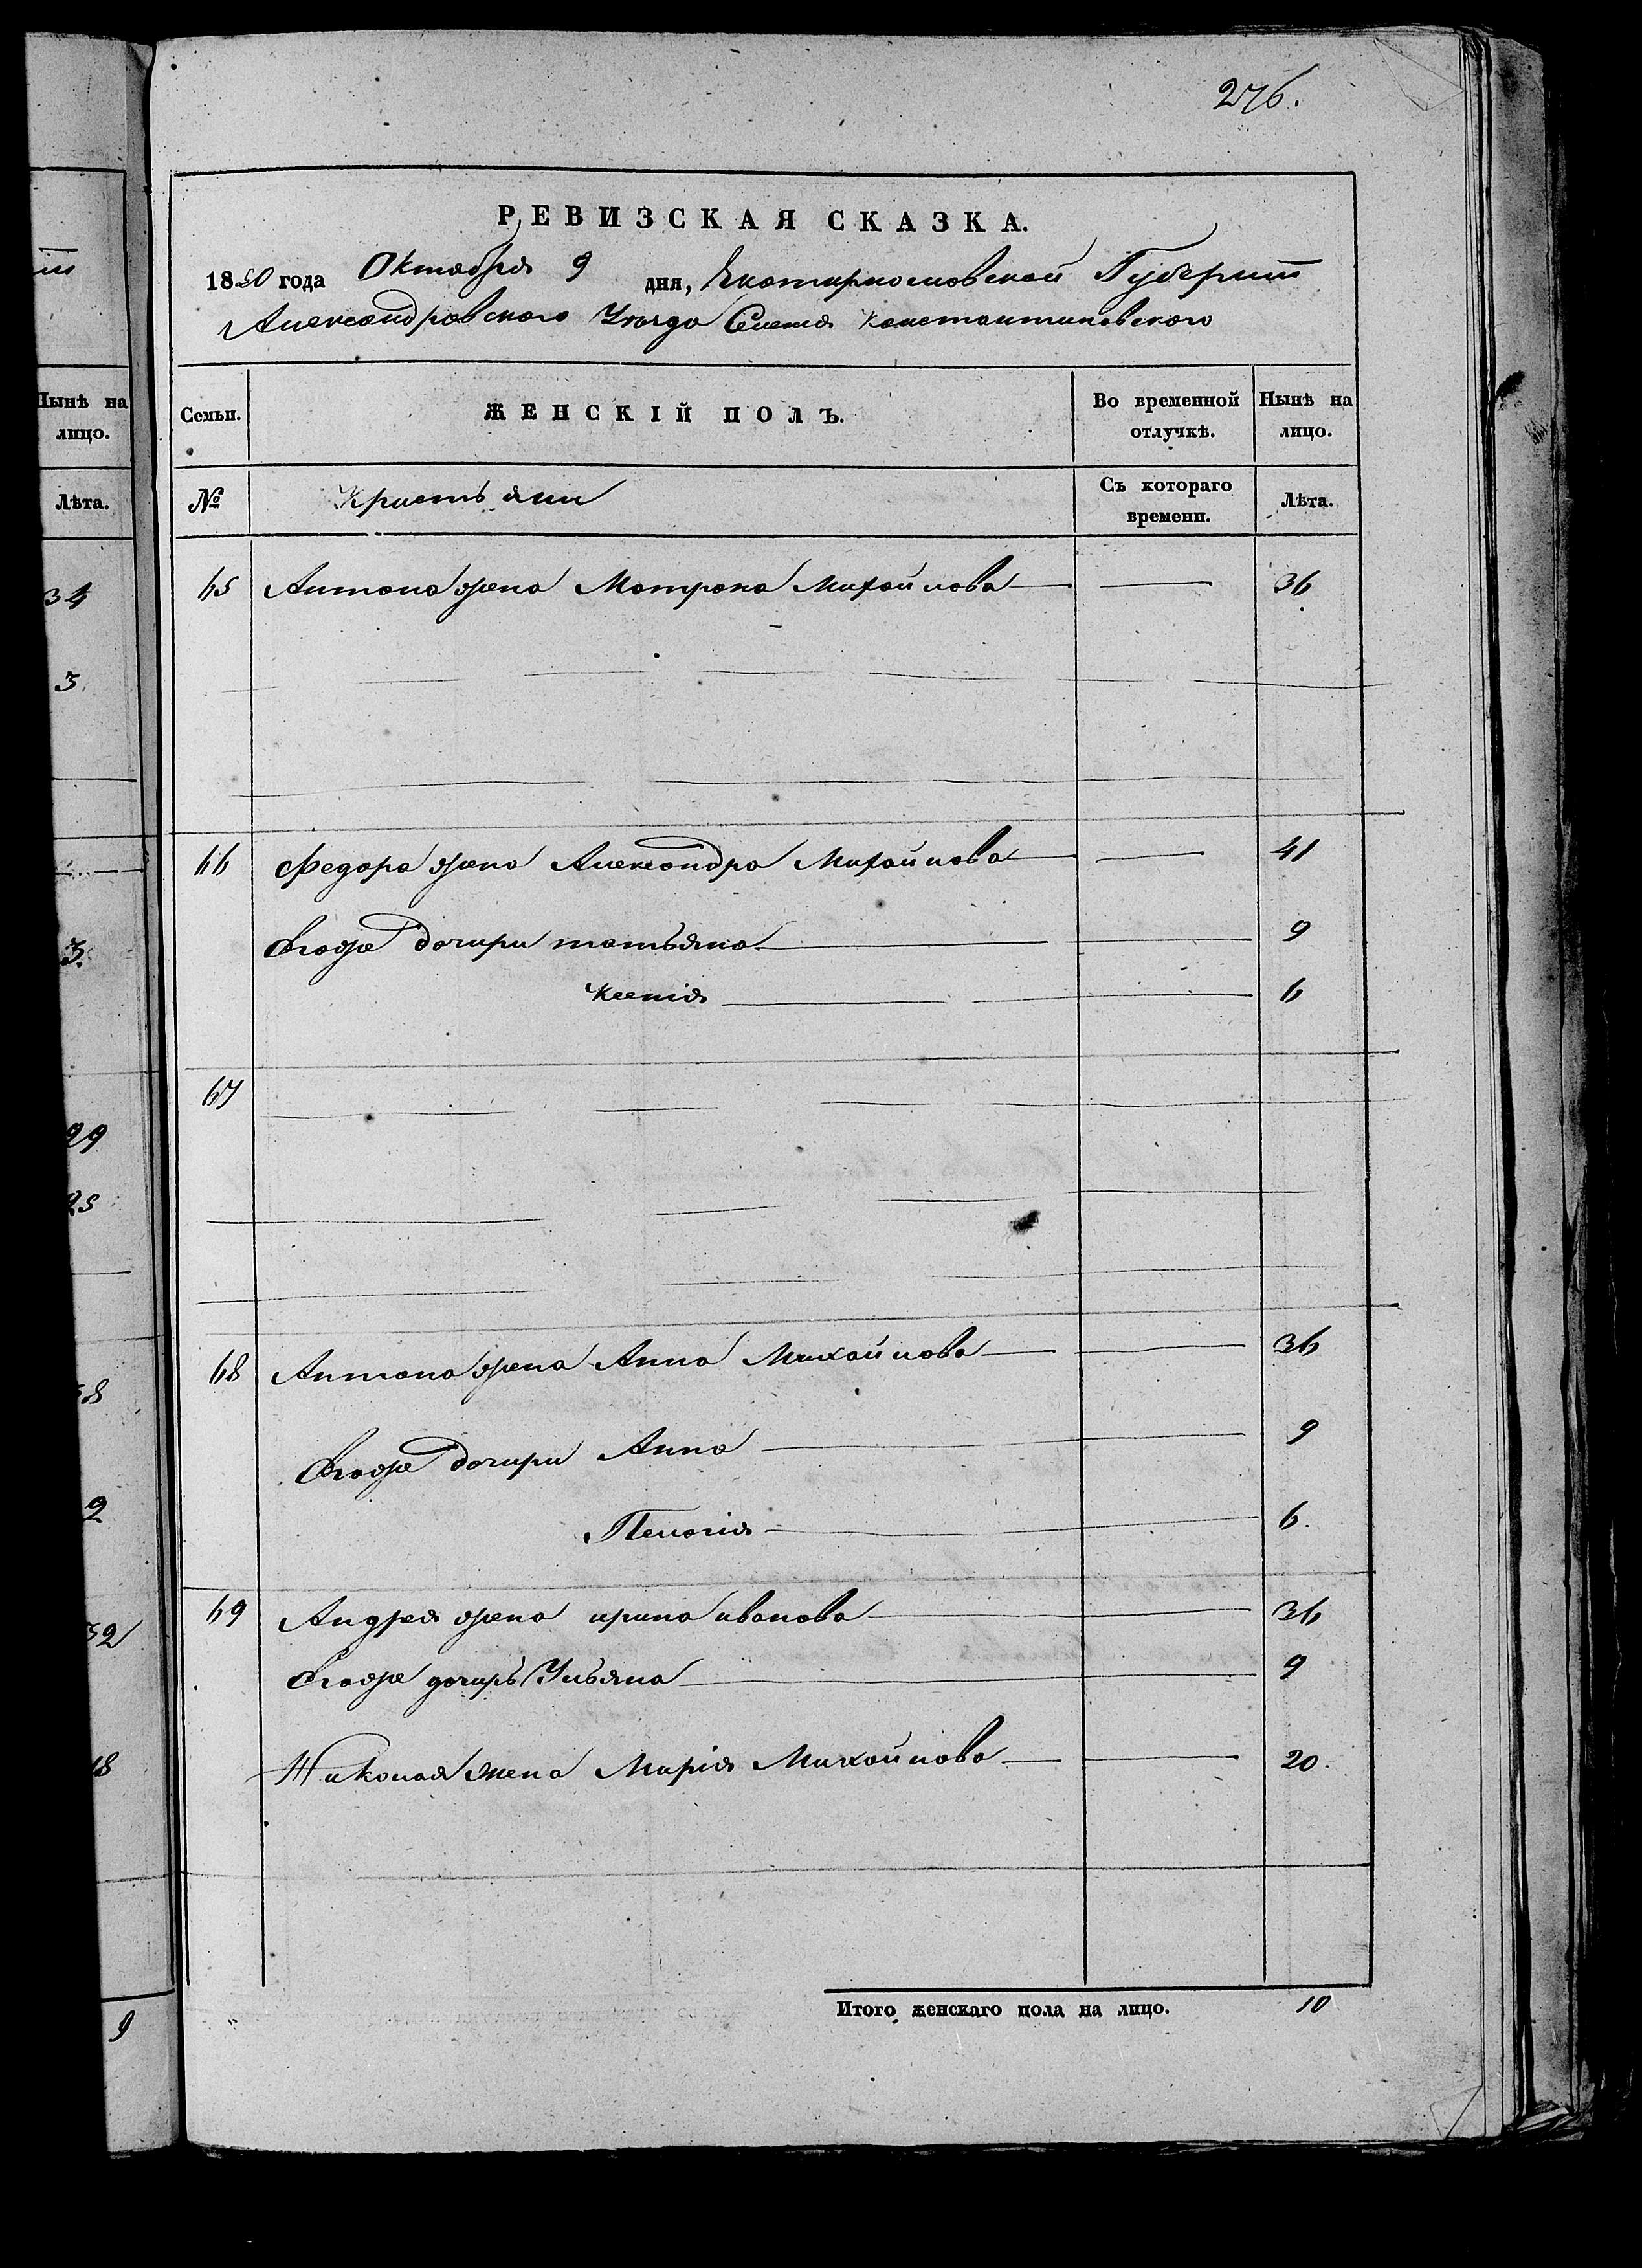 276.
РЕВИЗСКАЯ СКАЗКА.
1850 года Октября 9 дня, Екатиринословской Губернiи
Александровского Уезда Селенiя Константиновского
Нынѣ на
лицо.
Лѣта.
34
3
3.
29
25
2
32
18
9
Семьи. ЖЕНСКІЙ ПОЛЪ. Во временной Нынѣ на
отлучкѣ. лицо.
№ Кристьяни Съ котораго Лѣта.
времени.
65 Антона жена Матрона Михайлова 36
66 Федора жена Александра Михайлова 41
Егоже дочири татьяна 9
Ксенiя 6
67
68 Антона жена Анна Михайлова 36
Егоже дочири Анна 9
Пелагiя 6.
69 Андрея жена ирина иванова 36
Егоже дочирь Ульяна 9
Николая жена Марiя Михайлова 20.
Итого женскаго пола на лицо. 10